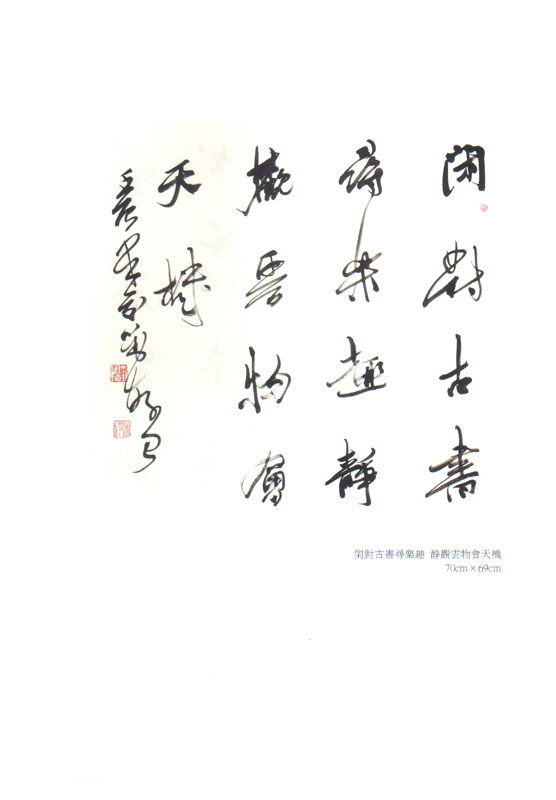 閑對古書
尋樂趣靜
觀雲物會
天機
閑對古書尋樂趣 静觀雲物會天機
70cm × 69cm